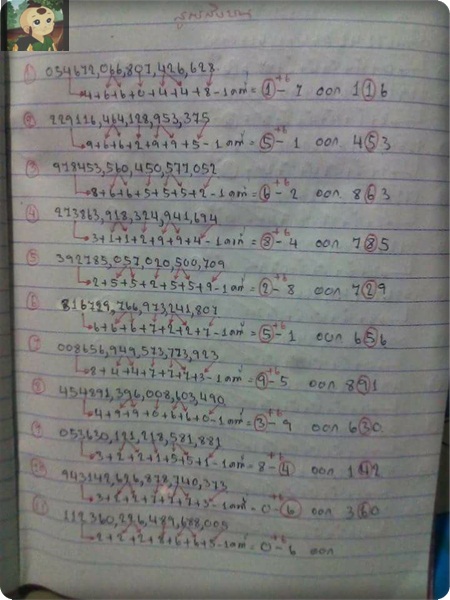 1 034672,066,807,426,623
4+6+6+0+4+4+8-1 = 1 +6 - 7 ออก 116
2 229116,464,128,953,375
9+6+6+2+9+9+5-1 = 5 +6 - 1 ออก 453
3 978453,560,450,577,052
8+6+6+5+5+5+2-1 = 6 +6 - 2 ออก 863
4 273863,918,324,941,694
3+1+1+2+9+9+4-1 = 8 +6 - 4 ออก 785
5 392785,057,020,500,709
2+5+5+2+5+5+9-1 = 2 +6 - 8 ออก 729
6 816729,766,973,241,807
6+6+6+7+2+2+7-1 = 5 +6 - 1 ออก 656
7 008656,949,573,773,923
8+4+4+7+7+7+3-1 = 9 +6 - 5 ออก 891
8 454891,396,008,603,490
4+9+9+0+6+6+0-1 = 3 +6 - 9 ออก 630
9 053630,121,218,581,881
3+2+2+1+5+5+1-1 = 8 +6 - 4 ออก 142
10 943142,626,878,740,373
3+2+2+7+7+7+3-1 = 0 +6 - 6 ออก 360
11 112360,226,489,688,005
2+2+2+8+6+6+5-1 = 0 +6 - 6 ออก